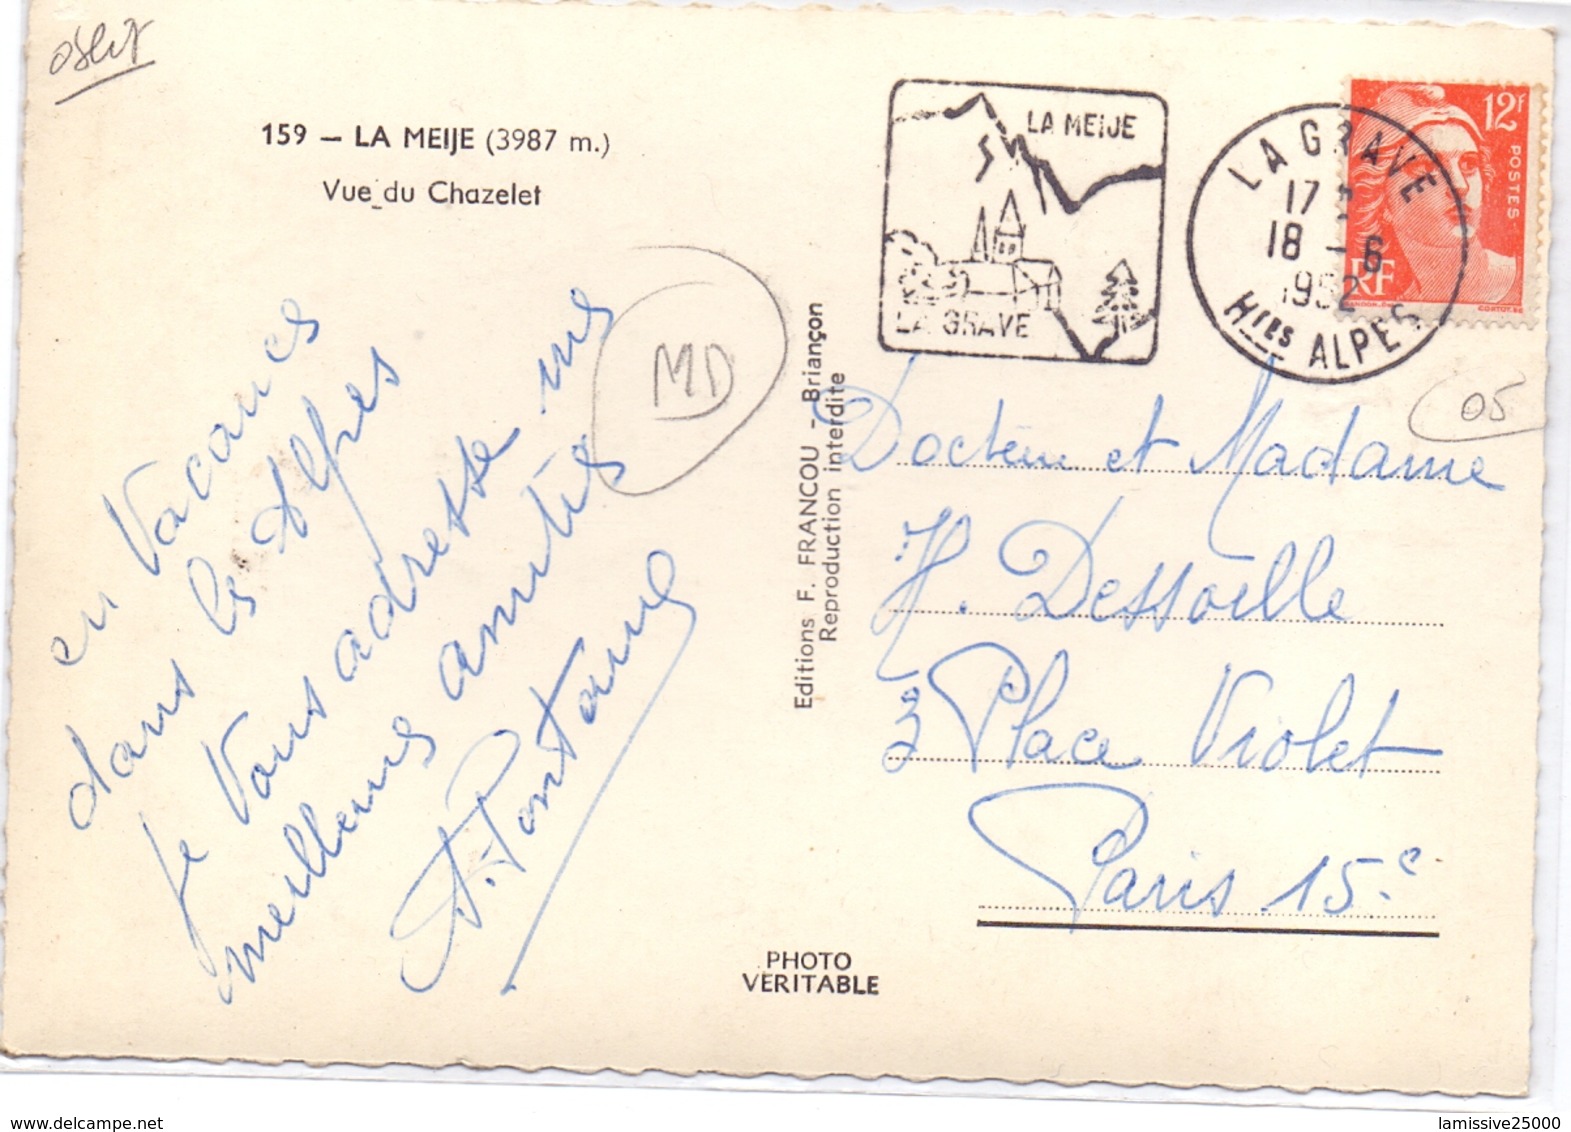 159 — LA MEIJE (3987 m.)
Vue du Chazelet
LA MEIJE
LA GRAVE
LA GRAVE
17
18 - 6
1952
Htes ALPES
12f
POSTES
RF
MD
05
en Vacances
dans les Alpes
je vous adresse mes
meilleures amitiés
Editions F. FRANCOU - Briançon
Reproduction interdite
Docteur et Madame
H. Dessoille
3 Place Violet
Paris 15.e
PHOTO
VERITABLE
www.delcampe.net
lamissive25000